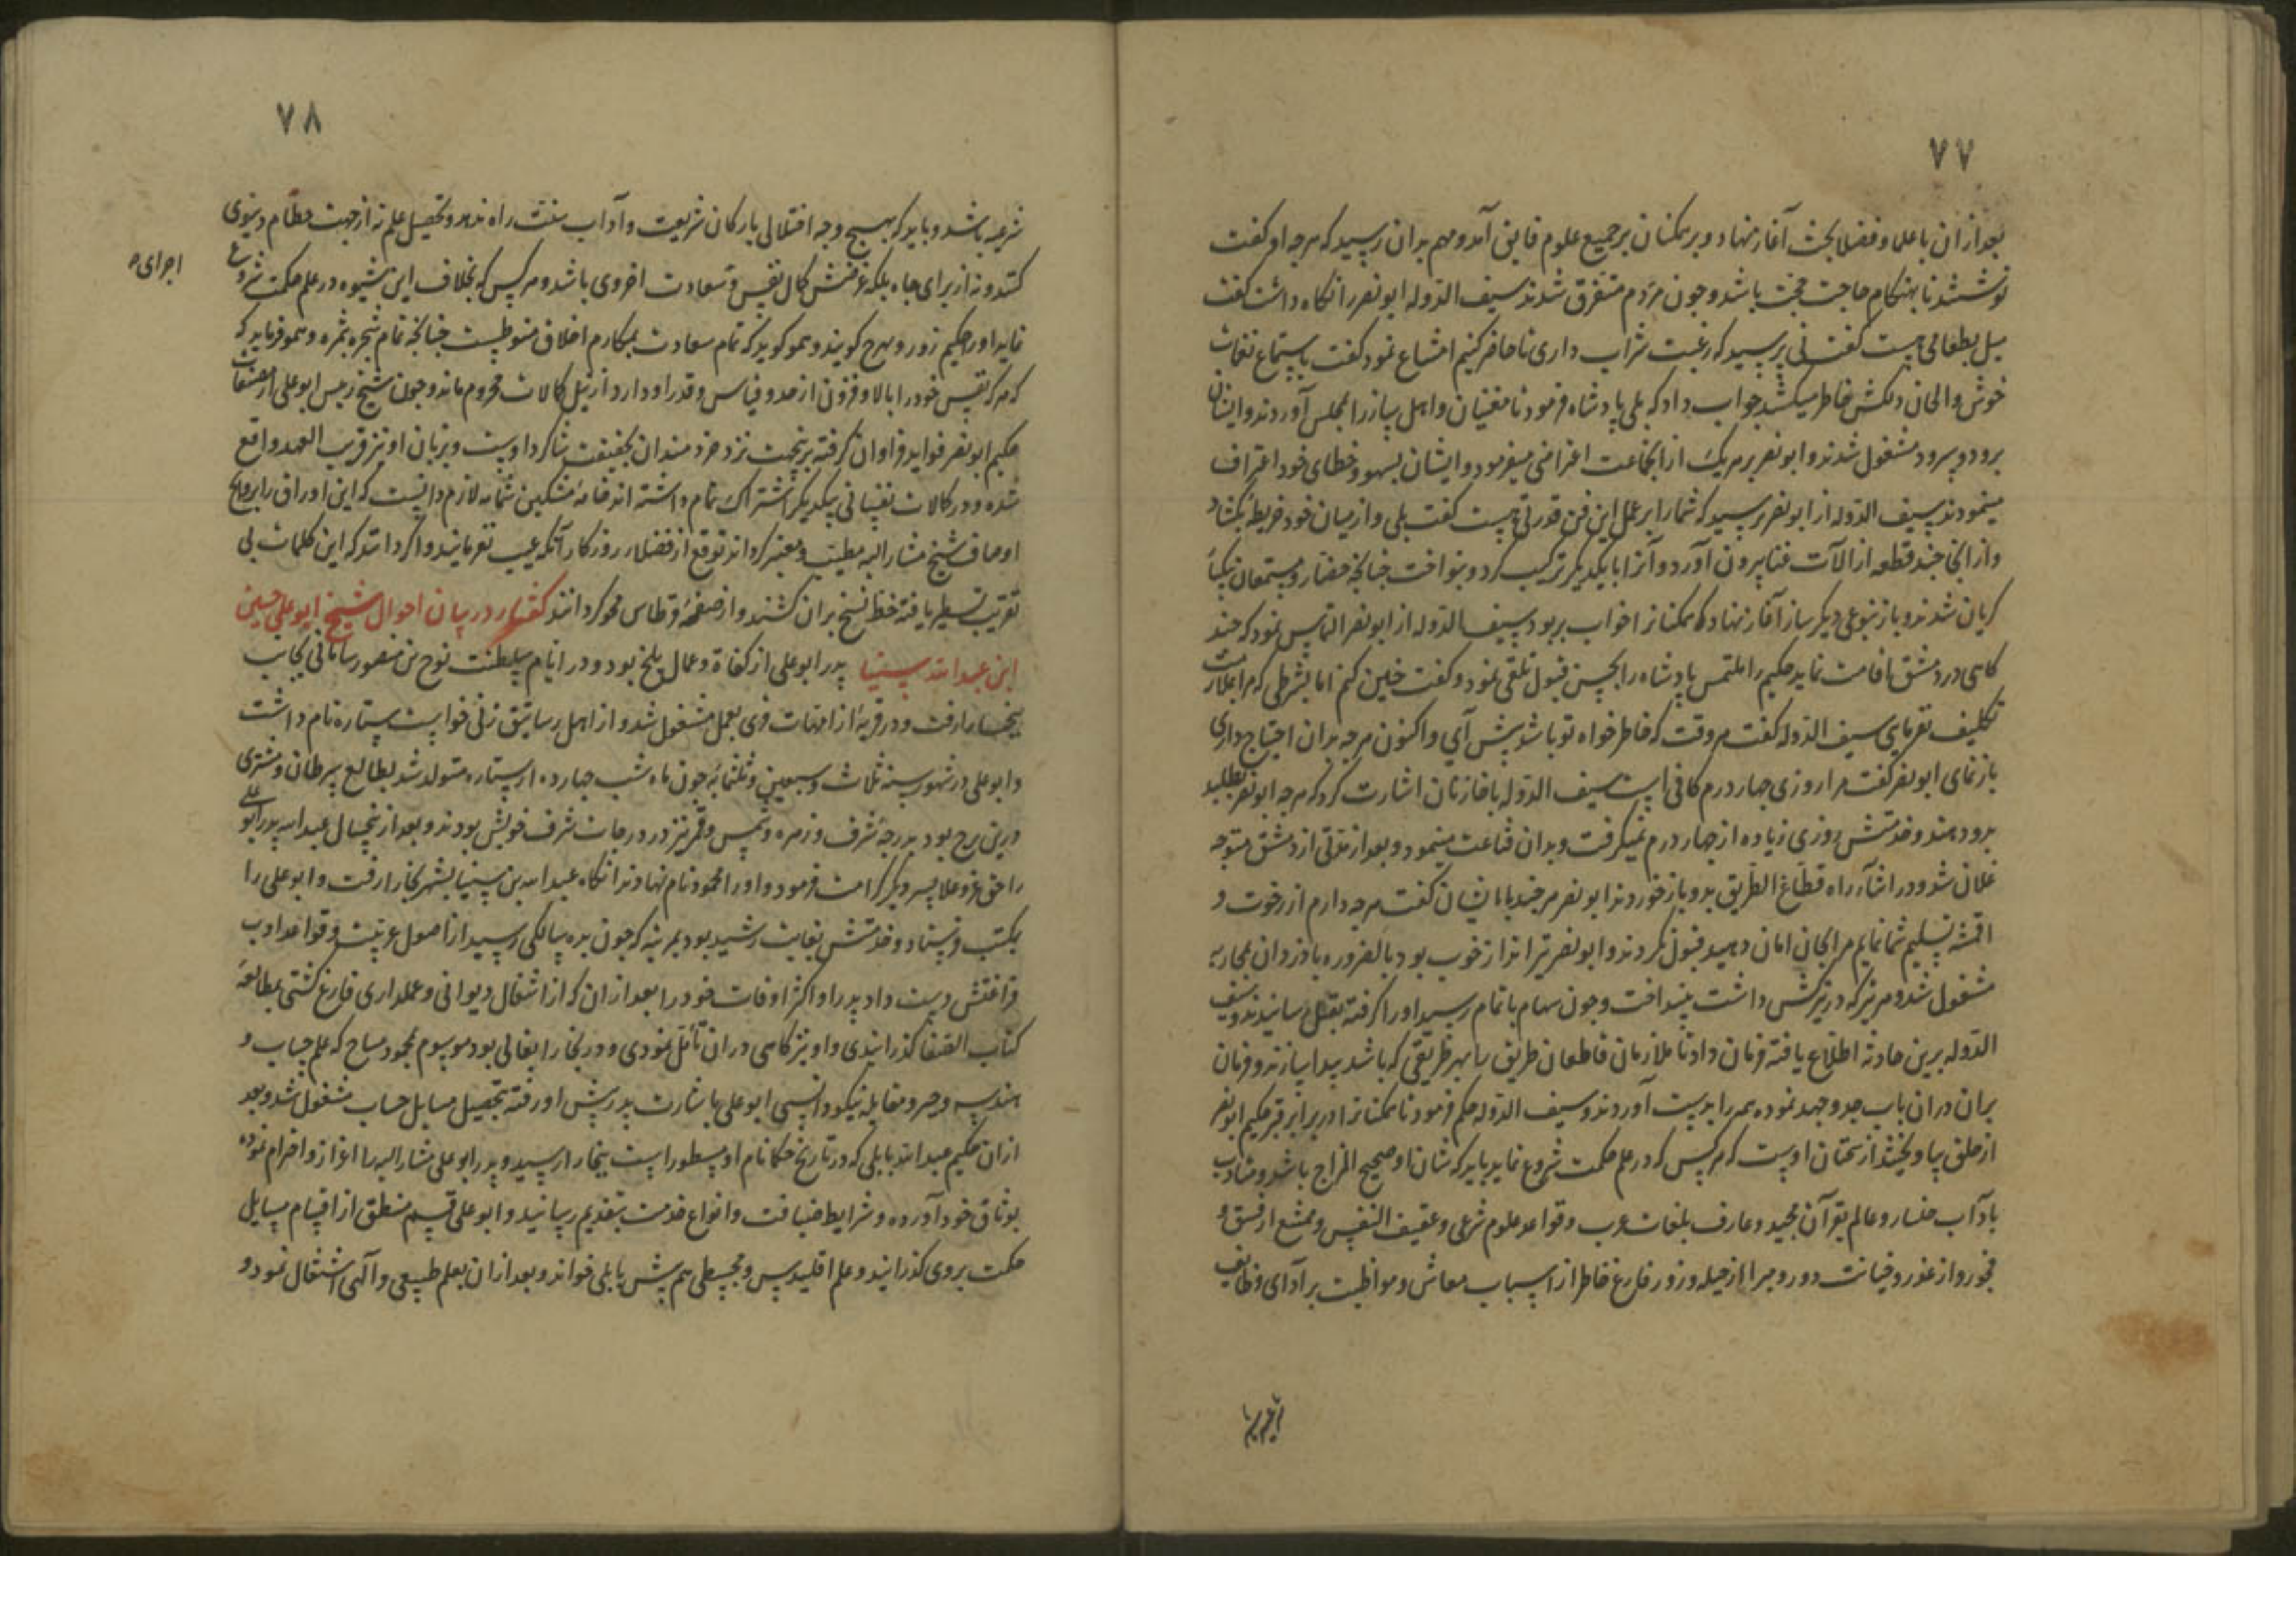 ٧٧
بعد از ان با علما و فضلا بحث آغاز نهاد و بر همکنان بر جمیع علوم فایق آمد و مهم بدان رسید که هرچه او کفت
نوشتند تا بهنکام حاجت حجت باشد و چون مردم متفرق شدند سیف الدوله ابو نصر را نکاه داشت کفت
میل بطعامی هست کفت نی پرسید که رغبت شراب داری تا حاضر کنیم امتناع نمود کفت باستماع نغمات
خوش و الحان دلکش خاطر میکشد جواب داد که بلی پادشاه فرمود تا مغنیان و اهل ساز را بمجلس آوردند و ایشان
برود و سرود مشغول شدند و ابو نصر بر هر یک از انجماعت اعتراضی میفرمود و ایشان بسهو و خطای خود اعتراف
مینمودند سیف الدوله از ابو نصر پرسید که شما را بر عمل این فن قدرتی هست کفت بلی و از میان خود خریطه بکشاد
و از انجا چند قطعه از آلات غنا بیرون آورد و آنرا با یکدیکر ترکیب کرد و بنواخت چنانچه حضار و مستمعان
کریان شدند و باز بنوعی دیکر ساز آغاز نهاد که همکنانرا خواب بربود سیف الدوله از ابو نصر التماس نمود که چند
کاهی در دمشق اقامت نماید حکیم ملتمس پادشاه را بحسن قبول تلقی نمود و کفت چنین کنم اما بشرطی که مرا بملازمت
تکلیف نفرمای سیف الدوله کفت هر وقت که خاطر خواه تو باشد پیش آی و اکنون هرچه بدان احتیاج داری
باز نمای ابو نصر کفت مرا روزی چهار درم کافی است سیف الدوله با خازنان اشارت کرد که هرچه ابو نصر بطلبد
بدو دهند و خدمتش روزی زیاده از چهار درم نمیکرفت و بدان قناعت مینمود و بعد از مدتی از دمشق متوجه
عسقلان شد و در اثناء راه قطاع الطریق بدو باز خوردند ابو نصر هر چند با ایشان کفت هرچه دارم از رخوت و
اقمشه تسلیم شما نمایم مرا بجان امان دهید قبول نکردند و ابو نصر تیرانداز خوب بود بالضروره با دزدان بمحاربه
مشغول شد و هر تیر که در ترکش داشت بینداخت و چون سهام باتمام رسید او را کرفته بقتل رسانیدند و سیف
الدوله برین حادثه اطلاع یافته فرمان داد تا ملازمان قاطعان طریق را بهر طریقی که باشد پیدا سازند و فرمان
بران دران باب جد و جهد نموده همه را بدست آوردند و سیف الدوله حکم فرمود تا همکنانرا در برابر قبر حکیم ابو نصر
از حلق بیاویختند از سخنان اوست که هر کس که در علم حکمت شروع نماید باید که شاب و صحیح المزاج باشد و متادب
بآداب اخیار و عالم بقرآن مجید و عارف بلغات عرب و قواعد علوم شرعی و عفیف النفس و ممتنع از فسق و
فجور و از غدر و خیانت دور و مبرا از حیله و زور فارغ خاطر از اسباب معاش و مواظبت بر ادای وظایف
٧٨
شرعیه باشد و باید که بهیچ وجه اختلالی بارکان شریعت و آداب سنت راه ندهد و تحصیل علم نه از جهت حطام دنیوی
کند و نه از برای جاه بلکه غرضش کمال نفس و سعادت اخروی باشد و هر کس که بخلاف این شیوه در علم حکمت شروع
نماید او را حکیم زور و بهرج کویند و همو کوید که تمام سعادت بمکارم اخلاق منوطست چنانچه تمام شجره بثمره و همو فرماید که
که هر که نفس خود را بالا و فزون از حد و قیاس و قدر او دارد از نیل کمالات محروم ماند و چون شیخ رئیس ابو علی از مصنفات
حکیم ابو نصر فواید فراوان کرفته نزد خردمندان بحقیقت شاکرد اوست و زمان او نیز قریب العهد واقع
شده و در کمالات نفسانی بیکدیکر اشتراک تمام داشته اند خامه مشکین شمامه لازم دانست که این اوراق را بروایح
اوصاف شیخ مشار الیه مطیب و معنبر کرداند توقع از فضلاء روزکار آنکه عیب نفرمایند و اکر دانند که این کلمات بی
تقریب تسطیر یافته خط نسخ بران کشند و از صفحه قرطاس محو کردانند کفتار در بیان احوال شیخ ابو علی حسین
ابن عبد الله سینا پدر ابو علی از کفاة و عمال بلخ بود و در ایام سلطنت نوح بن منصور سامانی بجانب
بخارا رفت و در قریه از امهات قری بعمل مشغول شد و از اهل رساتیق زنی خواست ستاره نام داشت
و ابو علی در شهور سنه ثلاث و سبعین و ثلثمائه چون ماه شب چهارده از ستاره متولد شد بطالع سرطان و مشتری
درین برج بود بدرجه شرف و زهره و شمس و قمر نیز در درجات شرف خویش بودند و بعد از پنجسال عبد الله پدر ابو علی
را حق عز و علا پسر دیکر کرامت فرمود و او را محمود نام نهادند انکاه عبد الله بن سینا بشهر بخارا رفت و ابو علی را
بمکتب فرستاد و خدمتش بغایت رشید بود بمرتبه که چون بده سالکی رسید از اصول عربیت و قواعد ادب
فراغتش دست داد پدر او اکثر اوقات خود را بعد از ان که از اشغال دیوانی و عملداری فارغ کشتی بمطالعه
کتاب الصفا کذرانیدی و او نیز کاهی دران تامل نمودی و در بخارا بقالی بود موسوم بمحمود مساح که علم حساب و
هندسه و جبر و مقابله نیکو دانستی ابو علی باشارت پدر پیش او رفته بتحصیل مسایل حساب مشغول شد و بعد
ازان حکیم عبد الله بابلی که در تاریخ حکما نام او مسطور است ببخارا رسید و پدر ابو علی مشار الیه را اعزاز و احترام نموده
بوثاق خود آورده و شرایط ضیافت و انواع خدمت بتقدیم رسانید و ابو علی قسم منطق از اقسام مسایل
حکمت بر وی کذرانید و علم اقلیدس و مجسطی هم پیش بابلی خواند و بعد ازان بعلم طبیعی و الهی اشتغال نمود و
اجرای